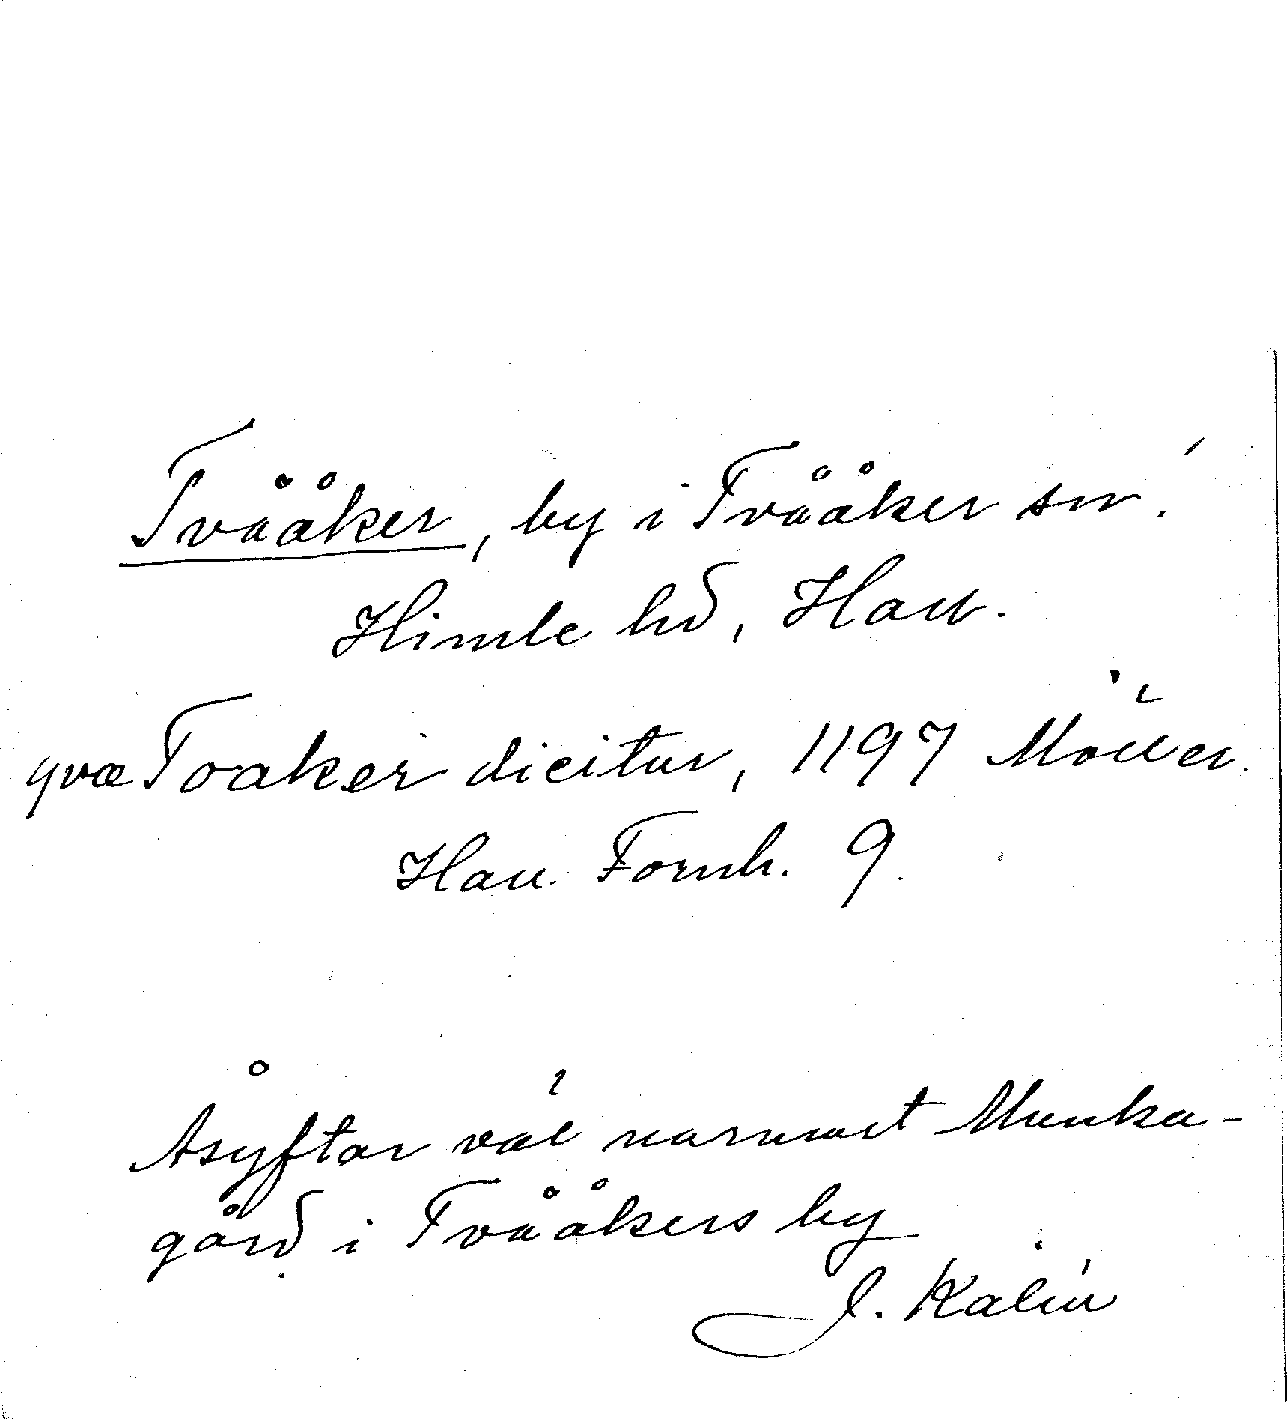 Tvååker, by i Tvååker sn.
Himle hd, Hall.
qvæ Toaker dicitur, 1197 Möller.
Hall. Fornh. 9.
Åsyftar väl namnet Munka-
gård i Tvååkers by
J. Kalén